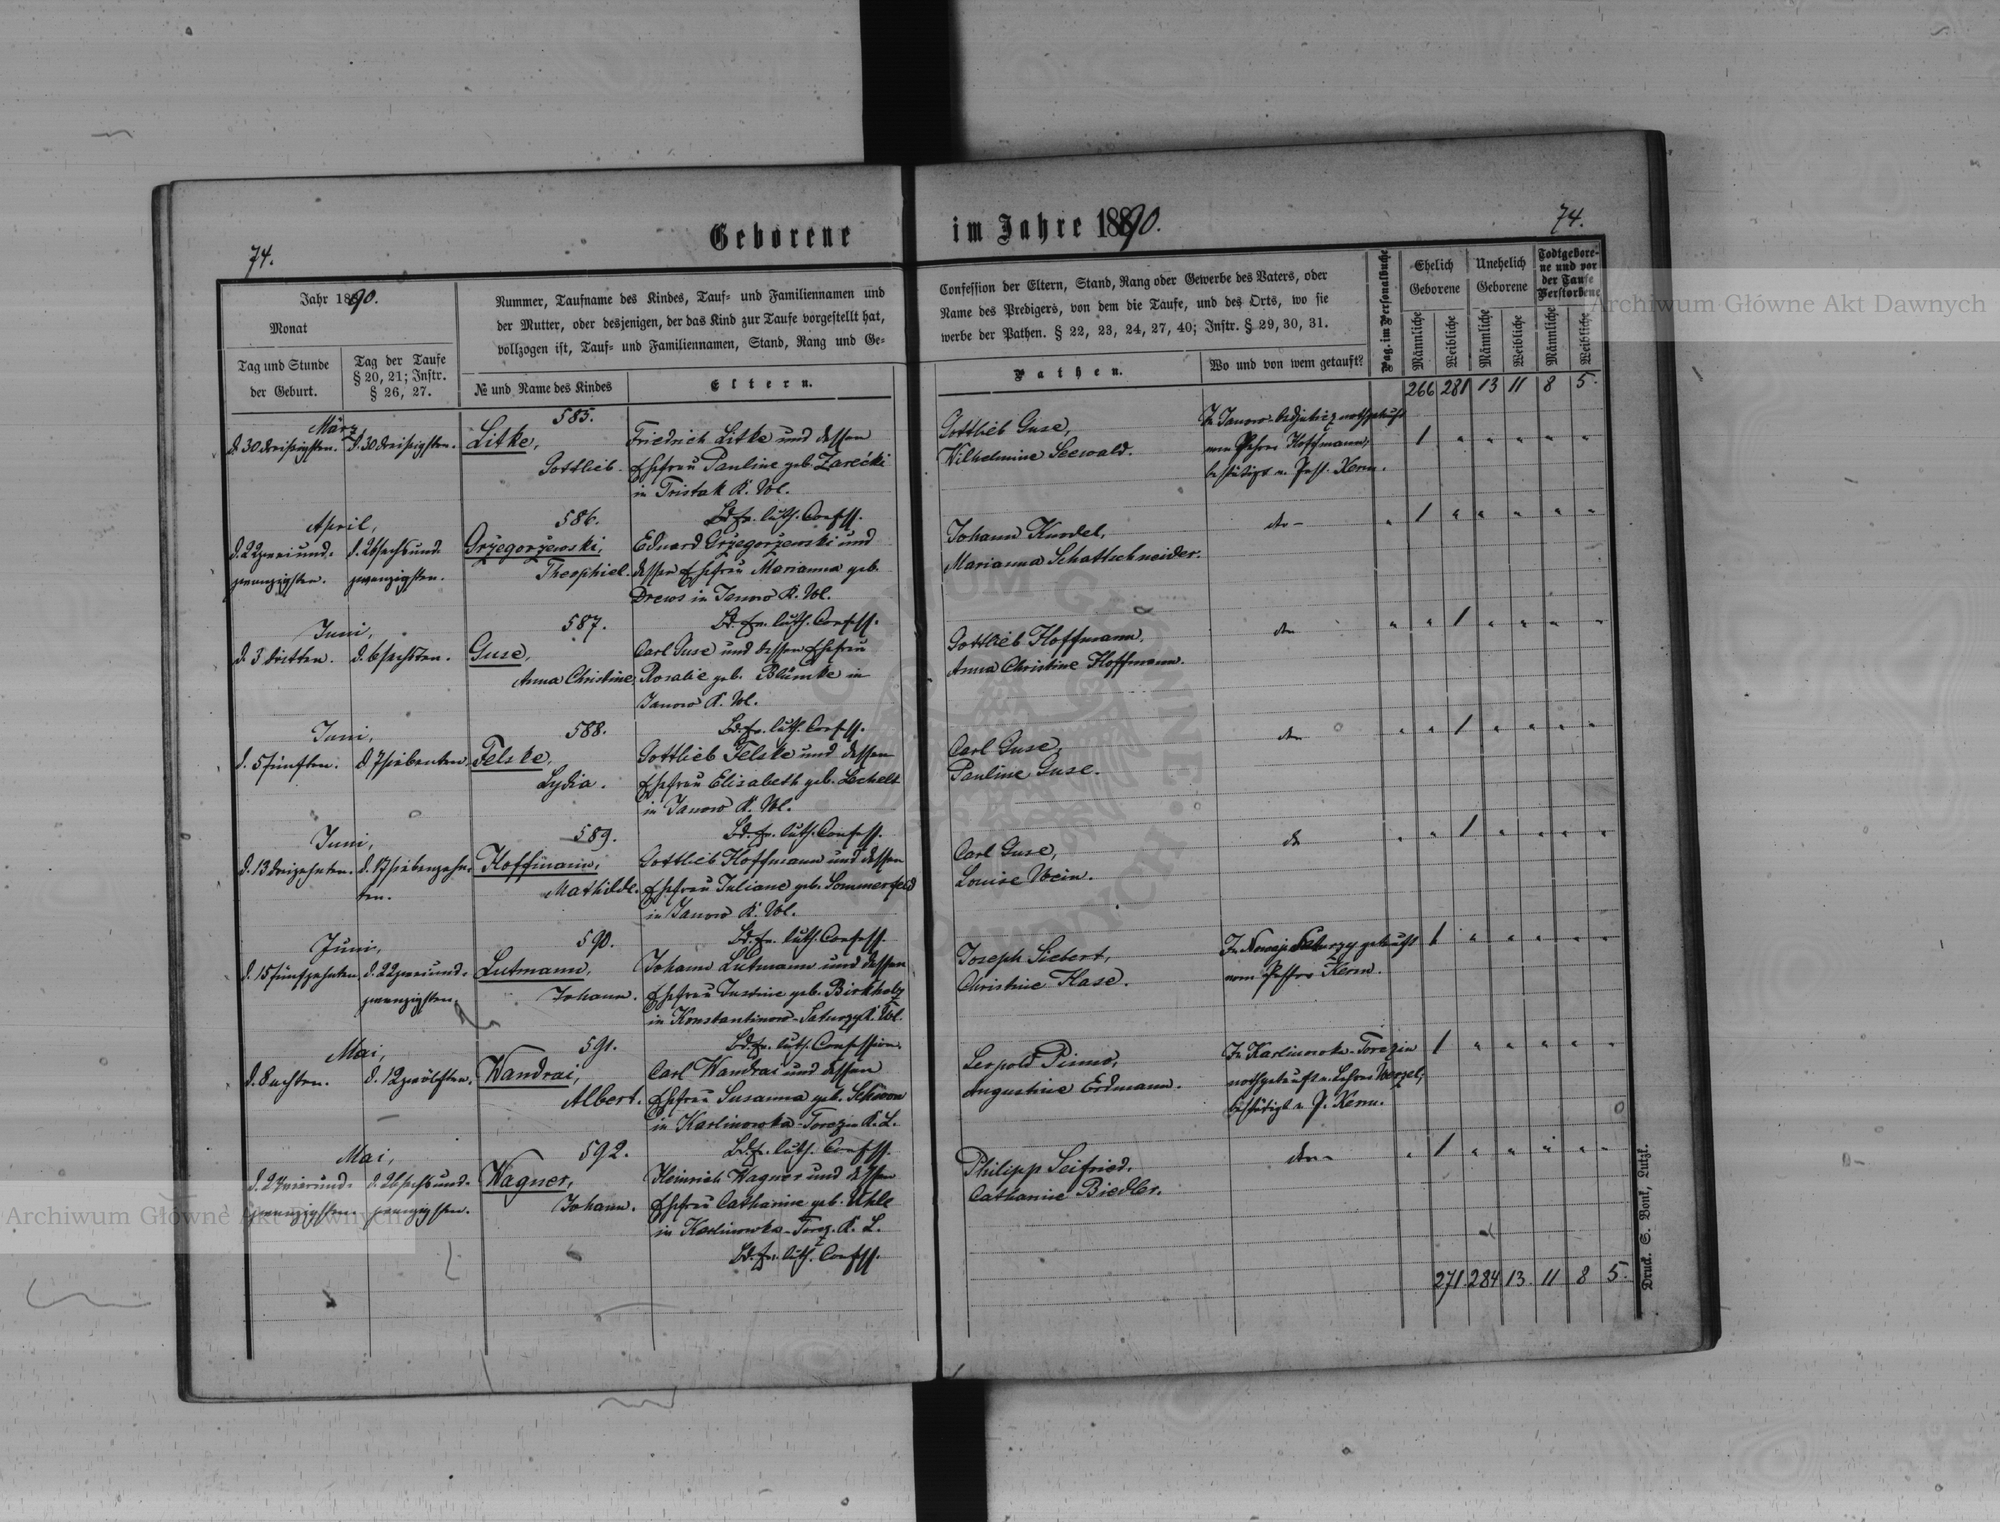 Geborene
im Jahre 1890.
74.
74.
Jahr 1890.
Monat
Tag und Stunde
der Geburt.
Tag der Taufe
§ 20, 21; Instr.
§ 26, 27.
Nummer, Taufname des Kindes, Tauf- und Familiennamen und
der Mutter, oder desjenigen, der das Kind zur Taufe vorgestellt hat,
vollzogen ist, Tauf- und Familiennamen, Stand, Rang und Ge-
№ und Name des Kindes
Eltern.
Confession der Eltern, Stand, Rang oder Gewerbe des Vaters, oder
Name des Predigers, von dem die Taufe, und des Orts, wo sie
werbe der Pathen. § 22, 23, 24, 27, 40; Instr. § 29, 30, 31.
Pathen.
Wo und von wem getauft?
Pag. im Personalbuche
Ehelich
Geborene
Unehelich
Geborene
Todtgebore-
ne und vor
der Taufe
Verstorbene
Männliche
Weibliche
Männliche
Weibliche
Männliche
Weibliche
266 281 13 11 8 5.
März,
d. 30 dreißigsten. d. 30 dreißigsten.
585.
Litke,
Gottlieb.
Friedrich Litke und dessen
Ehefrau Pauline geb. Zarecki
in Tristak K. Wol.
Bd. ev. luth. Confess.
Gottlieb Guse,
Wilhelmine Seewald.
In Janow nothgetauft
vom Hoffmann,
bestätigt v. Past. Kern.
April,
d. 22 zweiund-
zwanzigsten.
d. 26 sechsund-
zwanzigsten.
586.
Grzegorzewski,
Theophiel.
Eduard Grzegorzewski und
dessen Ehefrau Marianna geb.
Drews in Janow K. Wol.
Bd. ev. luth. Confess.
Johann Kundel,
Marianna Schattschneider.
dto
Juni,
d. 3 dritten. d. 6 sechsten.
587.
Guse,
Anna Christine.
Carl Guse und dessen Ehefrau
Rosalie geb. Blümke in
Janow K. Wol.
Bd. ev. luth. Confess.
Gottlieb Hoffmann,
Anna Christine Hoffmann.
dto
Juni,
d. 5 fünften. d. 7 siebenten.
588.
Felske,
Lydia.
Gottlieb Felske und dessen
Ehefrau Elisabeth geb. Bechelt
in Janow K. Wol.
Bd. ev. luth. Confess.
Carl Guse,
Pauline Guse.
dto
Juni,
d. 13 dreizehnten. d. 17 siebenzehn-
ten.
589.
Hoffmann,
Mathilde.
Gottlieb Hoffmann und dessen
Ehefrau Juliane geb. Sommerfeld
in Janow K. Wol.
Bd. ev. luth. Confess.
Carl Guse,
Louise Wein.
dto
Juni,
d. 15 fünfzehnten. d. 22 zweiund-
zwanzigsten.
590.
Lutmann,
Johann.
Johann Lutmann und dessen
Ehefrau Justine geb. Birkholz
in Konstantinow-Saturzy K. Wol.
Bd. ev. luth. Confession.
Joseph Siebert,
Christine Hase.
In Saturzy getauft
vom Pastor Kern.
Mai,
d. 8 achten. d. 12 zwölften.
591.
Wandrai,
Albert.
Carl Wandrai und dessen
Ehefrau Susanna geb. Schwon
in Karlinowka-Torezin K. L.
Bd. ev. luth. Confess.
Leopold Pimo,
Augustine Erdmann.
In Karlinowka-Torezin
nothgetauft v. Lehrer Wenzel,
bestätigt v. P. Kern.
Mai,
d. 24 vierund-
zwanzigsten.
d. 26 sechsund-
zwanzigsten.
592.
Wagner,
Johann.
Heinrich Wagner und dessen
Ehefrau Catharine geb. Uhle
in Karlinowka-Torez. K. L.
Bd. ev. luth. Confess.
Philipp Seifried.
Catharine Biedler.
dto
271. 284 13. 11 8 5.
Druck. S. Bonk, Lutzk.
Archiwum Główne Akt Dawnych
Archiwum Główne Akt Dawnych